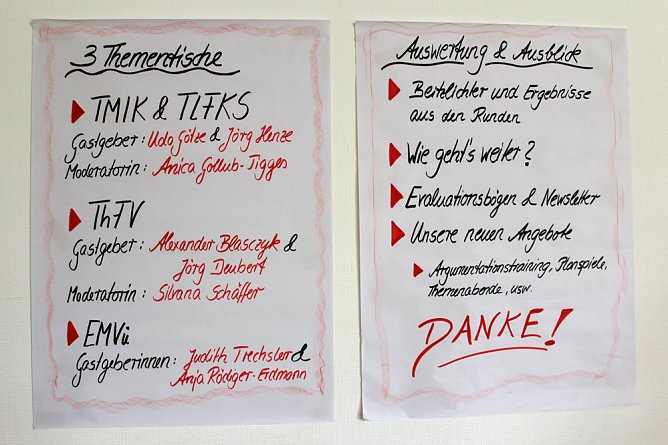 3 Thementische
TMIK & TLFKS
Gastgeber: Udo Götze & Jörg Henze
Moderatorin: Anica Gollub-Tigges
ThFV
Gastgeber: Alexander Blasczyk &
Jörg Deubert
Moderatorin: Silvana Schäffer
EMVü
Gastgeberinnen: Judith Trechsler &
Anja Rödiger-Erdmann
Auswertung & Ausblick
Blitzlichter und Ergebnisse
aus den Runden
Wie geht's weiter?
Evaluationsbögen & Newsletter
Unsere neuen Angebote
Argumentationstraining, Planspiele,
Themenabende, usw.
DANKE!